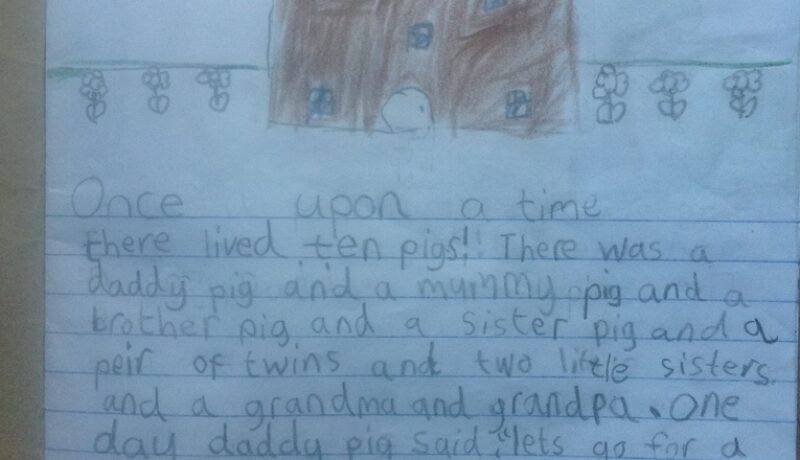 Once upon a time
there lived ten pigs! There was a
daddy pig and a mummy pig and a
brother pig and a sister pig and a
peir of twins and two little sisters
and a grandma and grandpa. One
day daddy pig said "lets go for a